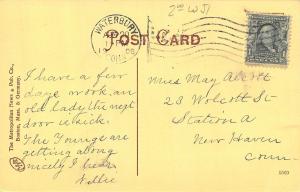 2nd WJ
WATERBURY
CONN.
POST CARD
The Metropolitan News & Pub. Co.,
Boston, Mass. & Germany.
I have a few
days work an
old lady the next
door is sick.
The Youngs are
getting along
nicely I hear
Nellie
Miss May Abbott
23 Wolcott St
Station A
New Haven
Conn.